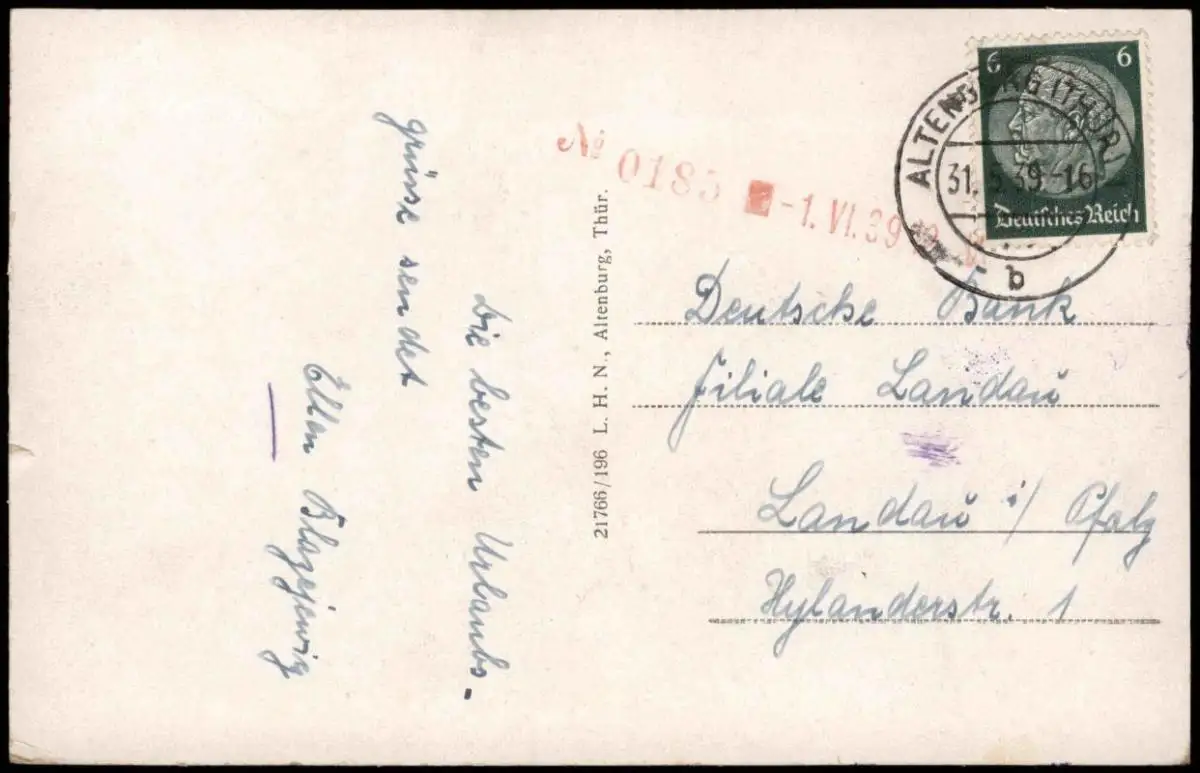 Die besten Urlaubs-
grüsse sendet
Ellen
21766/196 L. H. N., Altenburg, Thür.
№ 0185 -1. VI. 39
6 6
Deutsches Reich
ALTENBURG (THÜR)
31. 5. 39-16
b
Deutsche Bank
Filiale Landau
Landau i/ Pfalz
Hylanderstr. 1